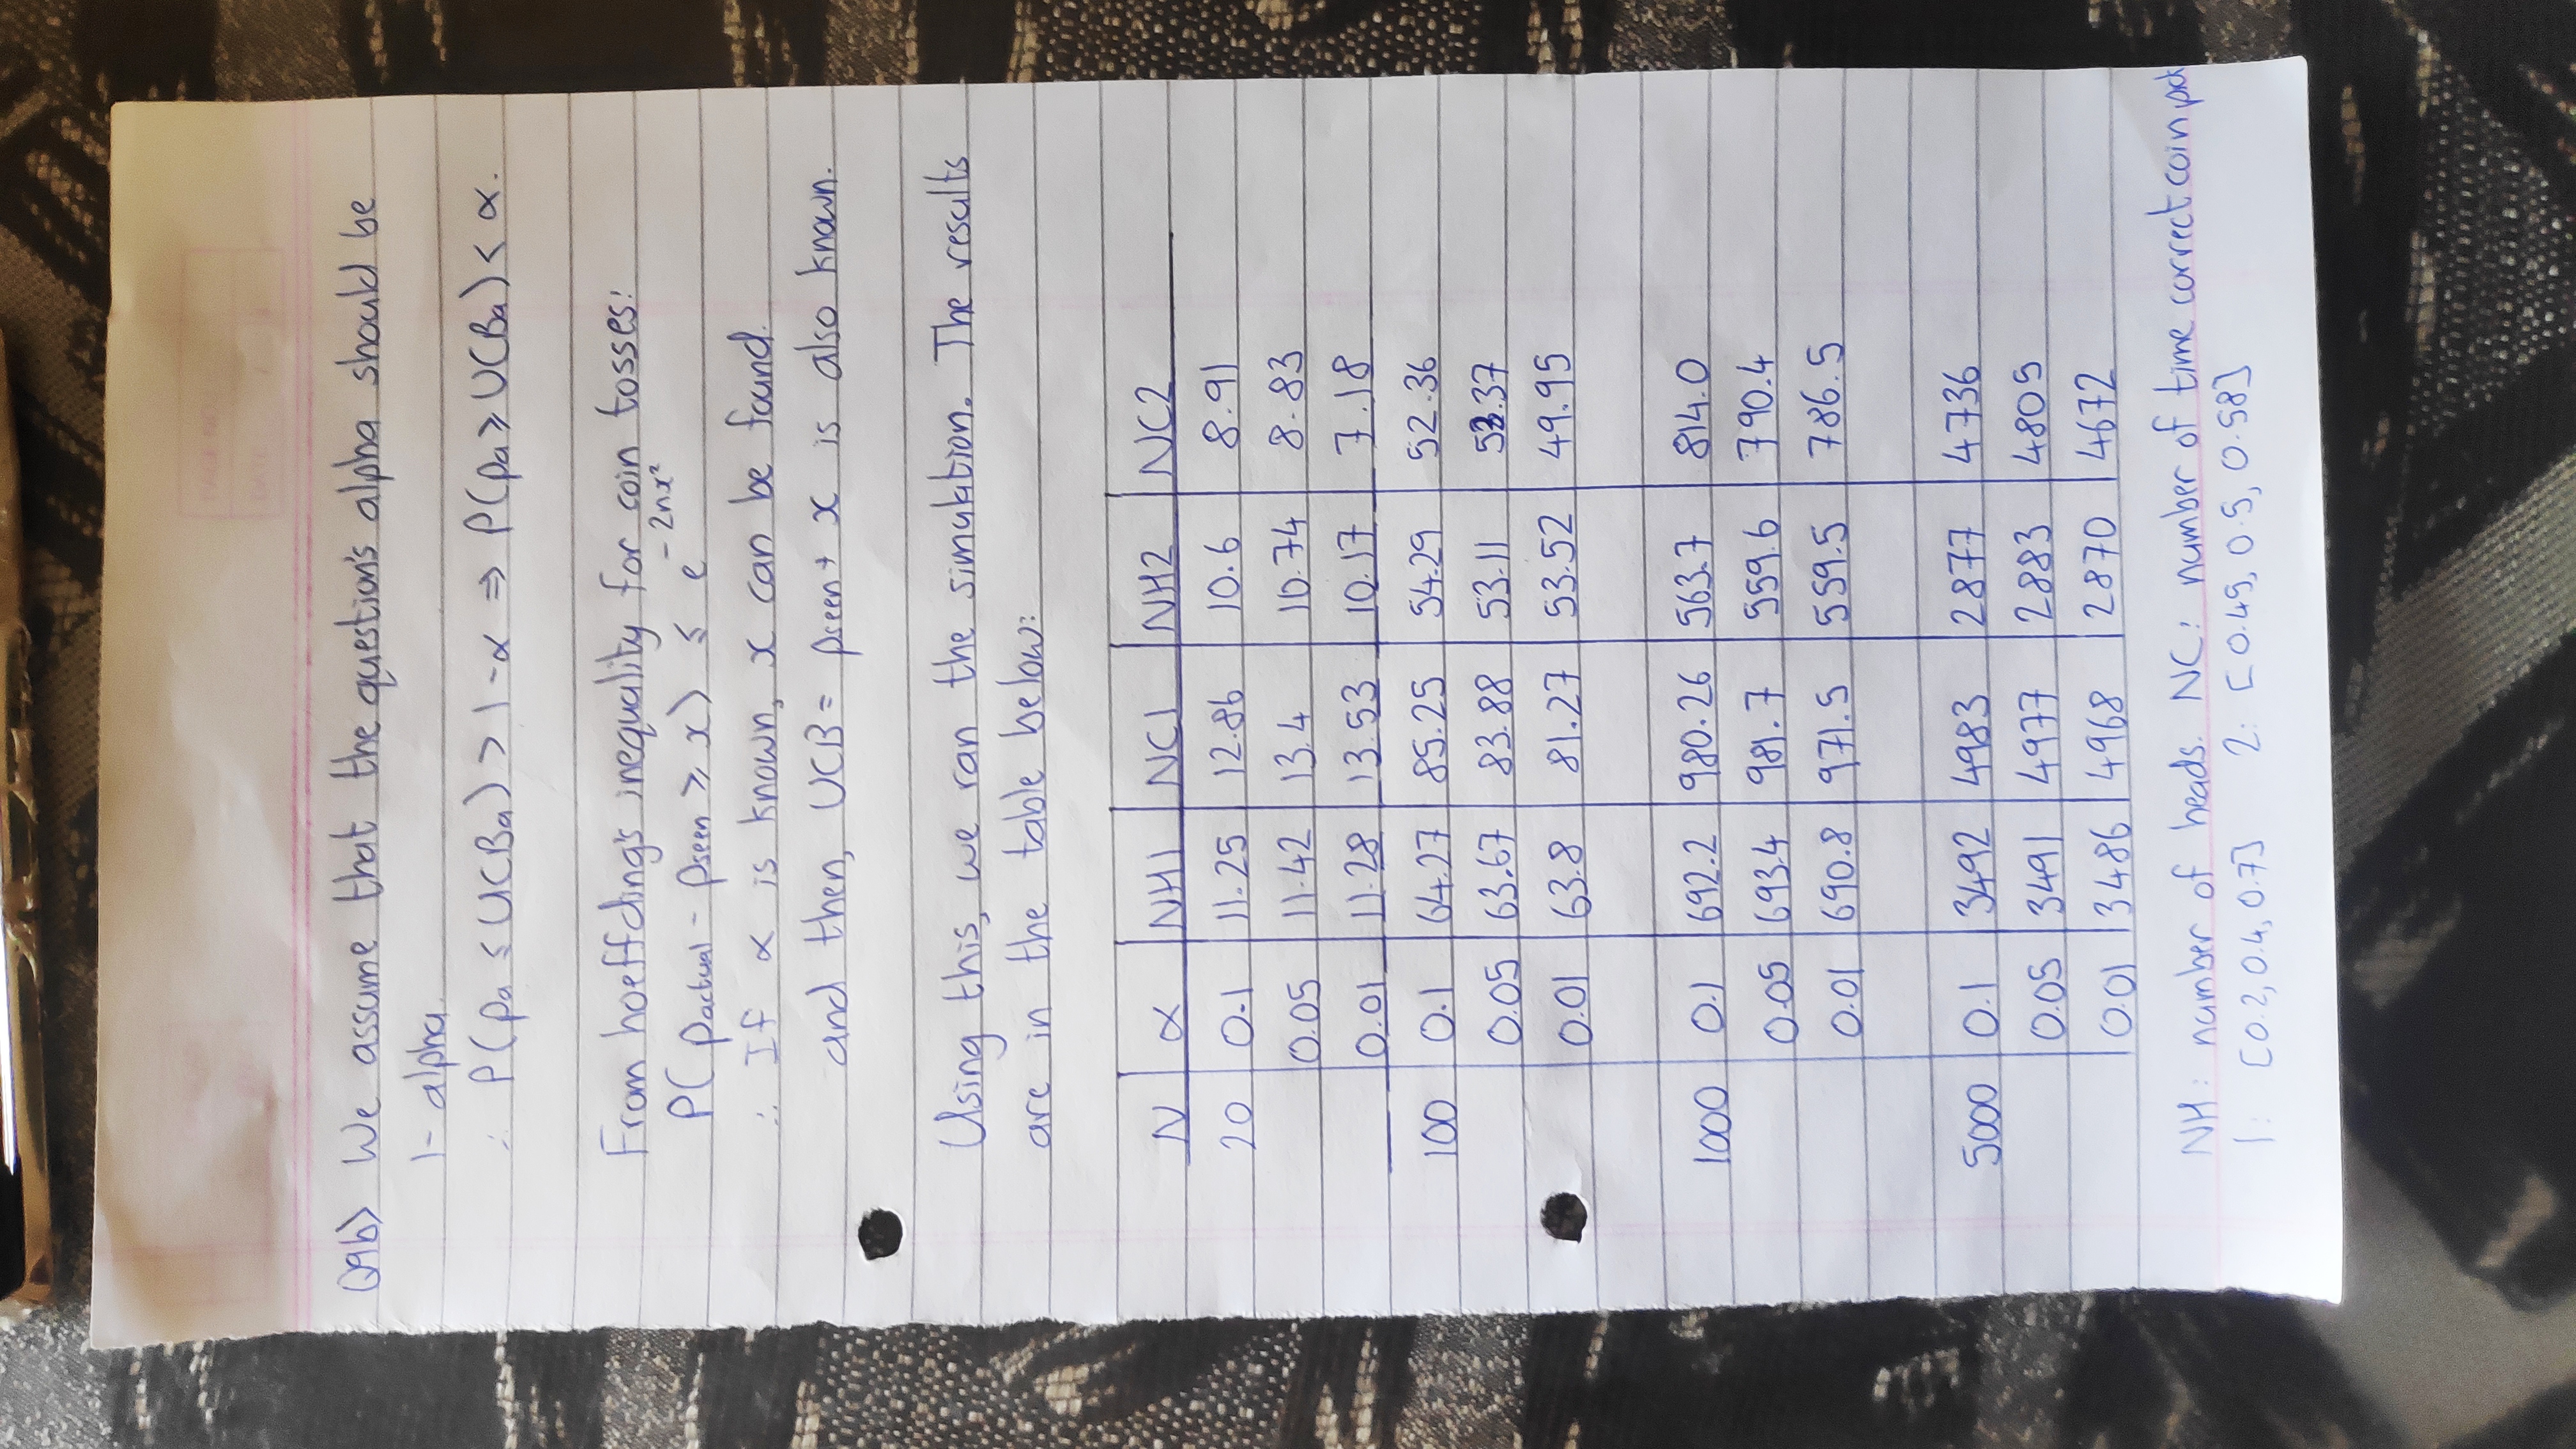 Q9b) We assume that the question's alpha should be
1- alpha.
∴ P(pa ≤ UCBa) > 1-α ⇒ P(pa ≥ UCBa) < α.
From hoeffding's inequality for coin tosses:
P(pactual - pseen ≥ x) ≤ e^-2nx²
∴ If α is known, x can be found.
and then, UCB = pseen + x is also known.
Using this, we ran the simulation. The results
are in the table below:
N α NH1 NC1 NH2 NC2
20 0.1 11.25 12.86 10.6 8.91
0.05 11.42 13.4 10.74 8.83
0.01 11.28 13.53 10.17 7.18
100 0.1 64.27 85.25 54.29 52.36
0.05 63.67 83.88 53.11 53.37
0.01 63.8 81.27 53.52 49.95
1000 0.1 692.2 980.26 563.7 814.0
0.05 693.4 981.7 559.6 790.4
0.01 690.8 971.5 559.5 786.5
5000 0.1 3492 4983 2877 4736
0.05 3491 4977 2883 4805
0.01 3486 4968 2870 4672
NH: number of heads. NC: number of time correct coin pick
1: [0.2, 0.4, 0.7] 2: [0.45, 0.5, 0.58]